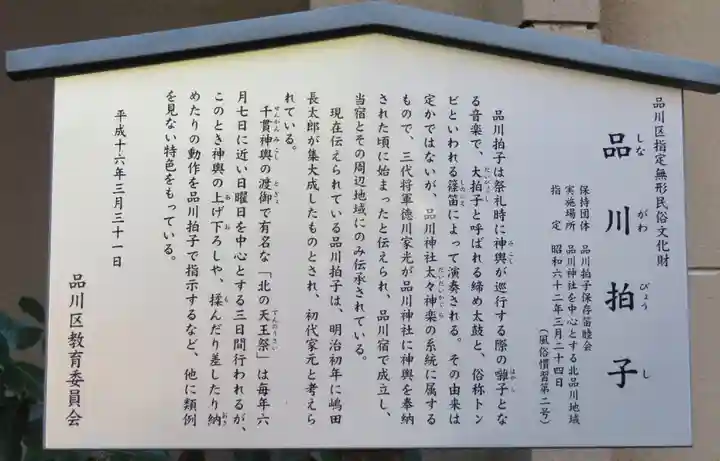 品川区指定無形民俗文化財
品川拍子
しながわびょうし
保持団体 品川拍子保存笛睦会
実施場所 品川神社を中心とする北品川地域
指定 昭和六十二年三月二十四日
(風俗慣習第二号)
品川拍子は祭礼時に神輿が巡行する際の囃子とな
みこし
はやし
る音楽で、大拍子と呼ばれる締め太鼓と、俗称トン
だいびょうし
ビといわれる篠笛によって演奏される。その由来は
しのぶえ
定かではないが、品川神社太々神楽の系統に属する
だいだいかぐら
もので、三代将軍徳川家光が品川神社に神輿を奉納
された頃に始まったと伝えられ、品川宿で成立し、
当宿とその周辺地域にのみ伝承されている。
現在伝えられている品川拍子は、明治初年に嶋田
長太郎が集大成したものとされ、初代家元と考えら
れている。
千貫神輿の渡御で有名な「北の天王祭」は毎年六
せんがんみこし
とぎょ
てんのうさい
月七日に近い日曜日を中心とする三日間行われるが、
このとき神輿の上げ下ろしや、揉んだり差したり納
あ
お
も
さ
おさ
めたりの動作を品川拍子で指示するなど、他に類例
を見ない特色をもっている。
平成十六年三月三十一日
品川区教育委員会